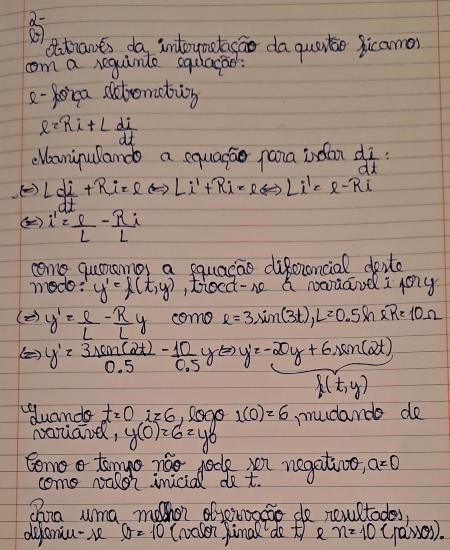 2-
b)
Através da interpretação da questão ficamos
com a seguinte equação:
e - força eletrometriz
e = Ri + L di/dt
Manipulando a equação para isolar di/dt :
(=) L di/dt + Ri = e (=) Li' + Ri = e (=) Li' = e - Ri
(=) i' = e/L - R/L i
como queremos a equação diferencial deste
modo: y' = f(t,y), troca-se a variável i por y
(=) y' = e/L - R/L y como e = 3sin(3t), L=0.5h e R=10Ω
(=) y' = 3sen(2t)/0.5 - 10/0.5 y (=) y' = -20y + 6sen(2t)
f(t,y)
Quando t=0 i=6, logo i(0)=6, mudando de
variável, y(0)=6=y0
Como o tempo não pode ser negativo, a=0
como valor inicial de t.
Para uma melhor observação de resultados,
definiu-se b=10 (valor final de t) e n=10 (passos).